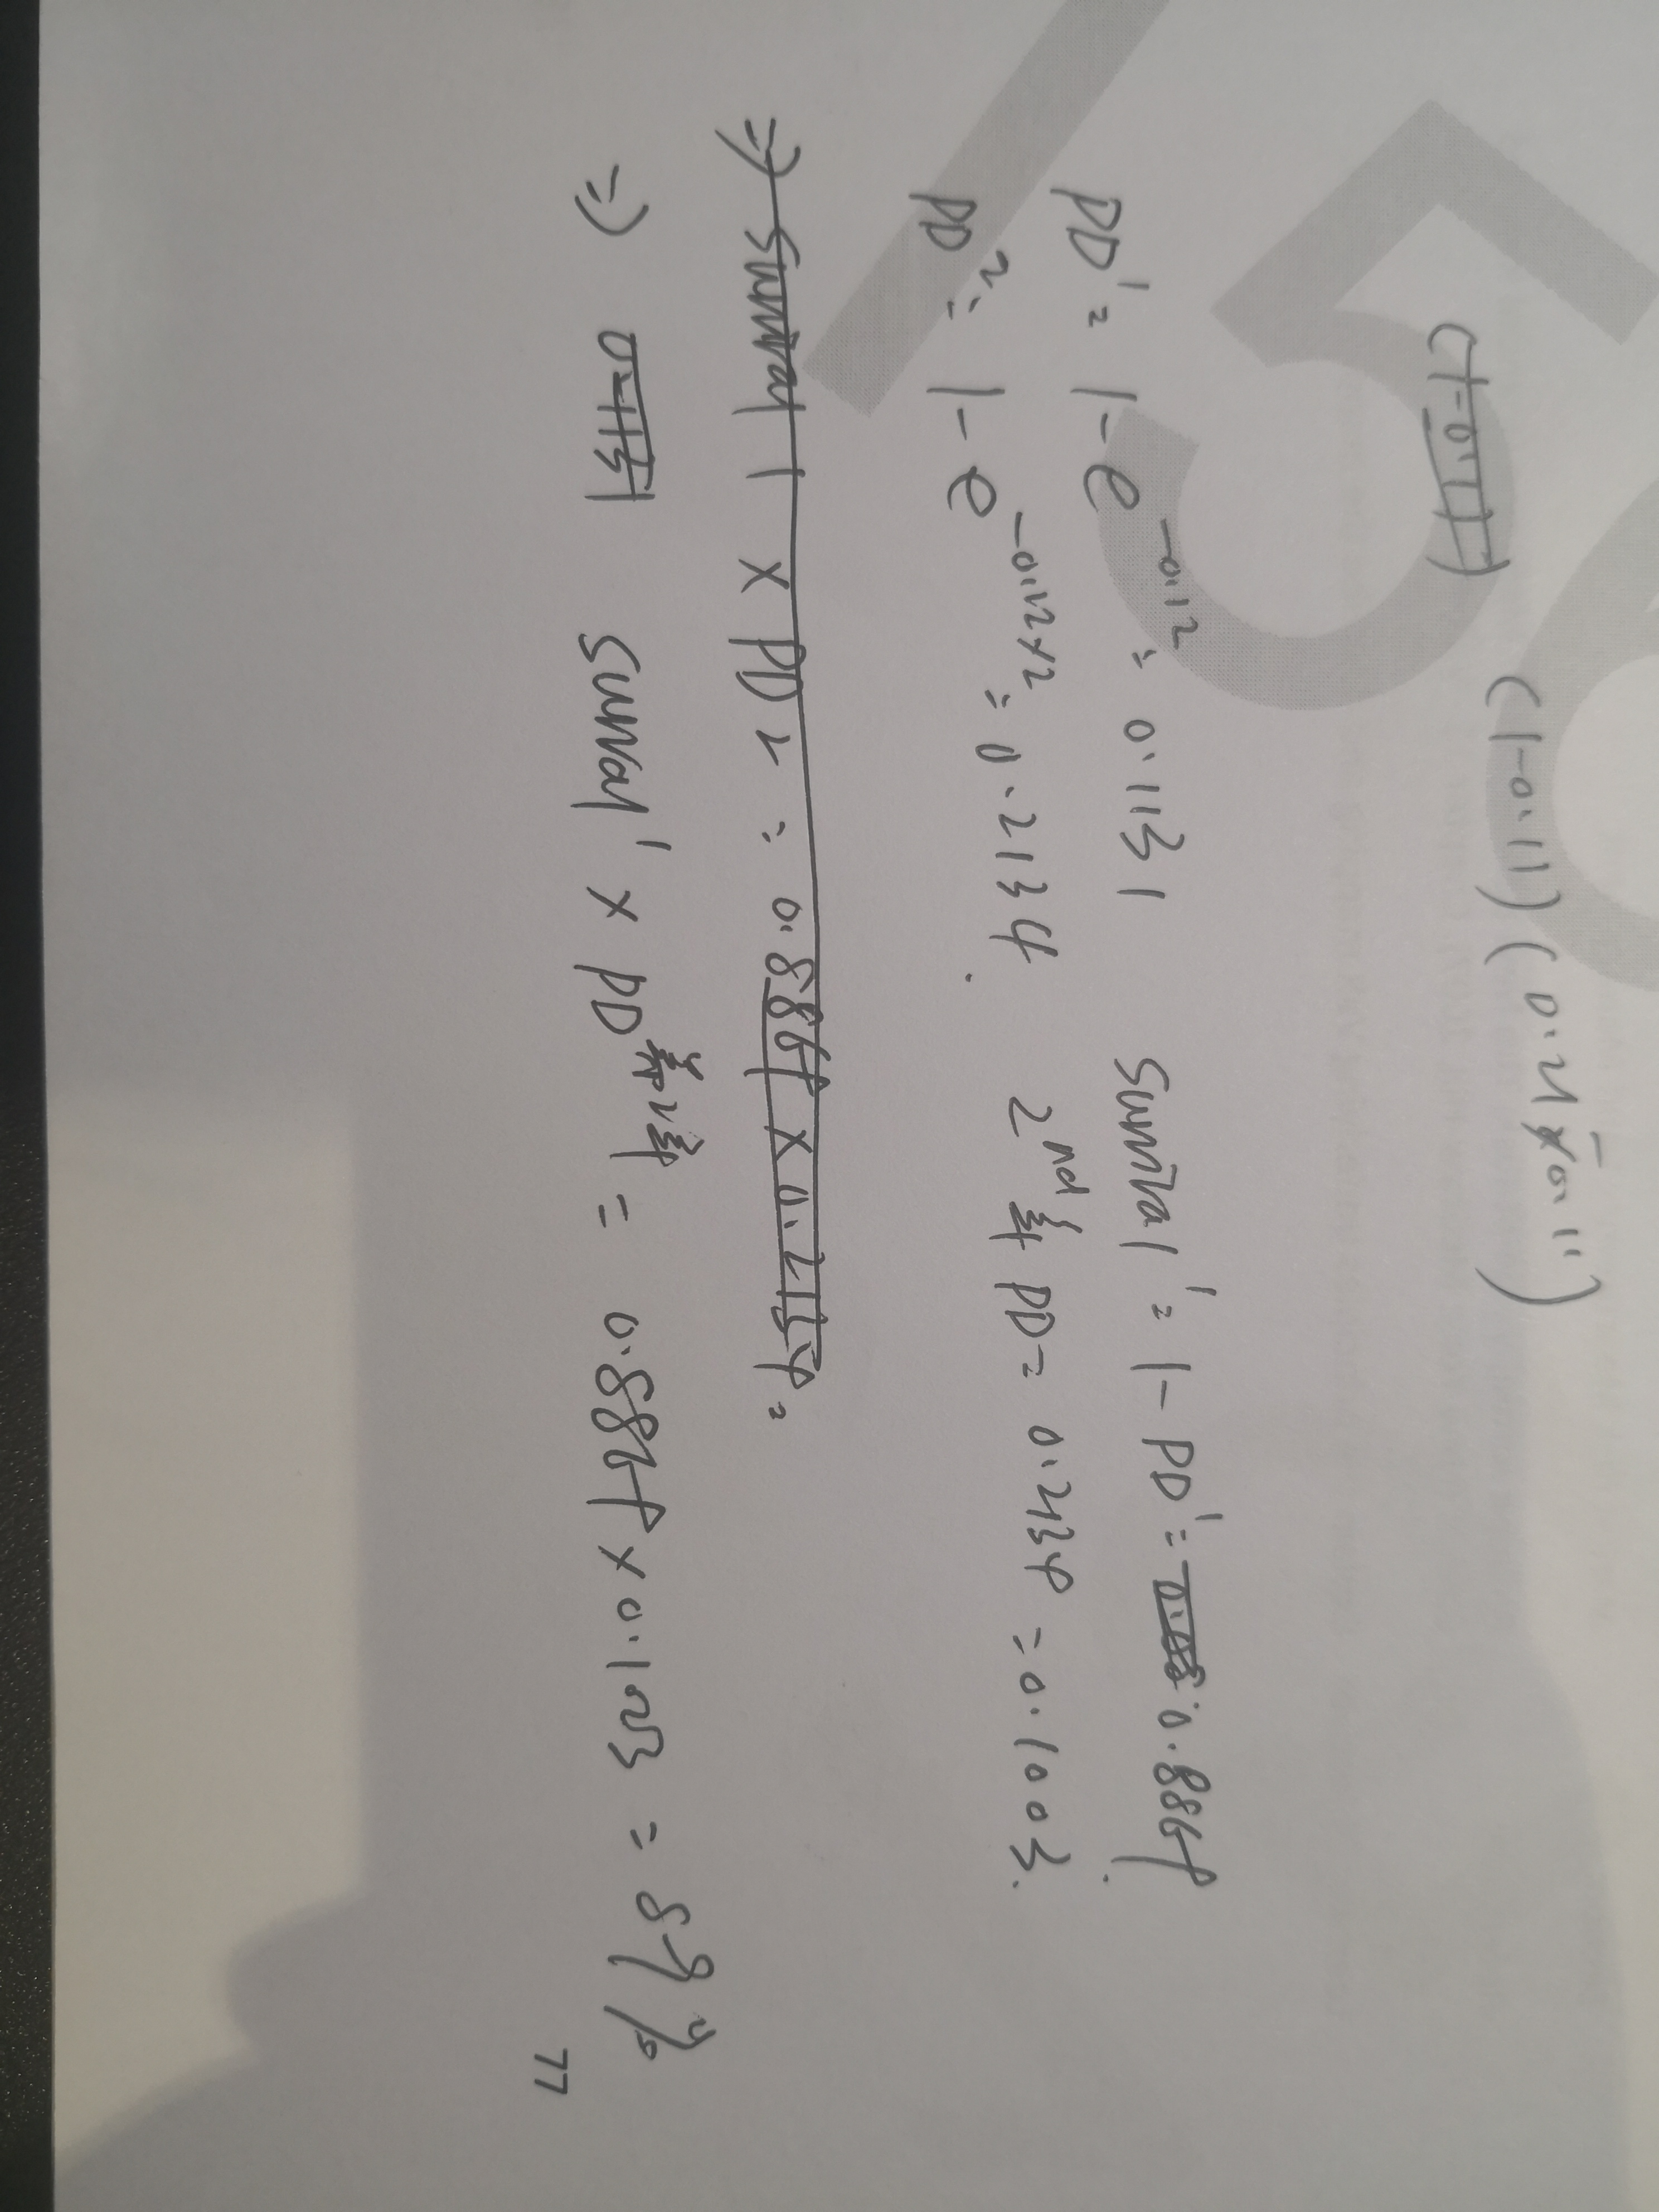 (1-0.11)(0.21-0.11)
PD¹ = 1 - e^-0.12 = 0.1131 Survival¹ = 1 - PD¹ = 0.8869.
PD² = 1 - e^-0.12×2 = 0.2134. 2nd年 PD = 0.2134 = 0.1003.
⇒ Survival 1 × PD 2 = 0.8869 × 0.2134 =
⇒ 0.1131 Survival¹ × PD第2年 = 0.8869 × 0.1003 = 8.9%
77